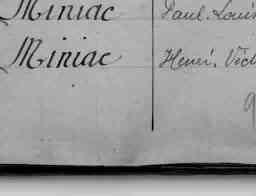 Miniac Paul. Louis
Miniac Henri. Vict